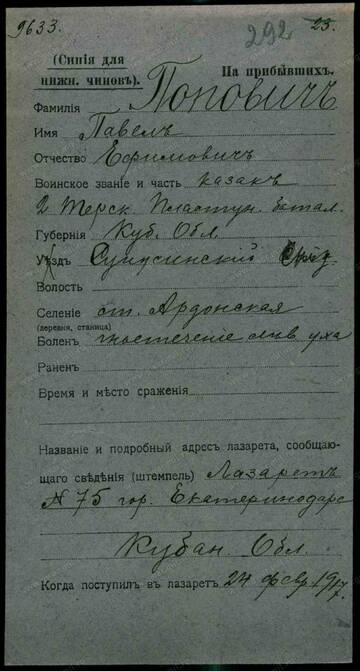 9633.
292 23.
(Синія для
нижн. чиновъ).
На прибывшихъ.
Фамилія Поповичъ
Имя Павелъ
Отчество Ефимовичъ
Воинское званіе и часть казакъ
2 Терск. Пластун. батал.
Губернія Куб. Обл
Уѣздъ Сунженскій
Волость
Селеніе ст. Ардонская
(деревня, станица)
Боленъ гноетеченіе лѣв уха
Раненъ
Время и мѣсто сраженія
Названіе и подробный адресъ лазарета, сообщаю-
щаго свѣдѣнія (штемпель) Лазаретъ
№ 75 гор. Екатеринодаръ
Кубан. Обл.
Когда поступилъ въ лазаретъ 24 февр 1917.